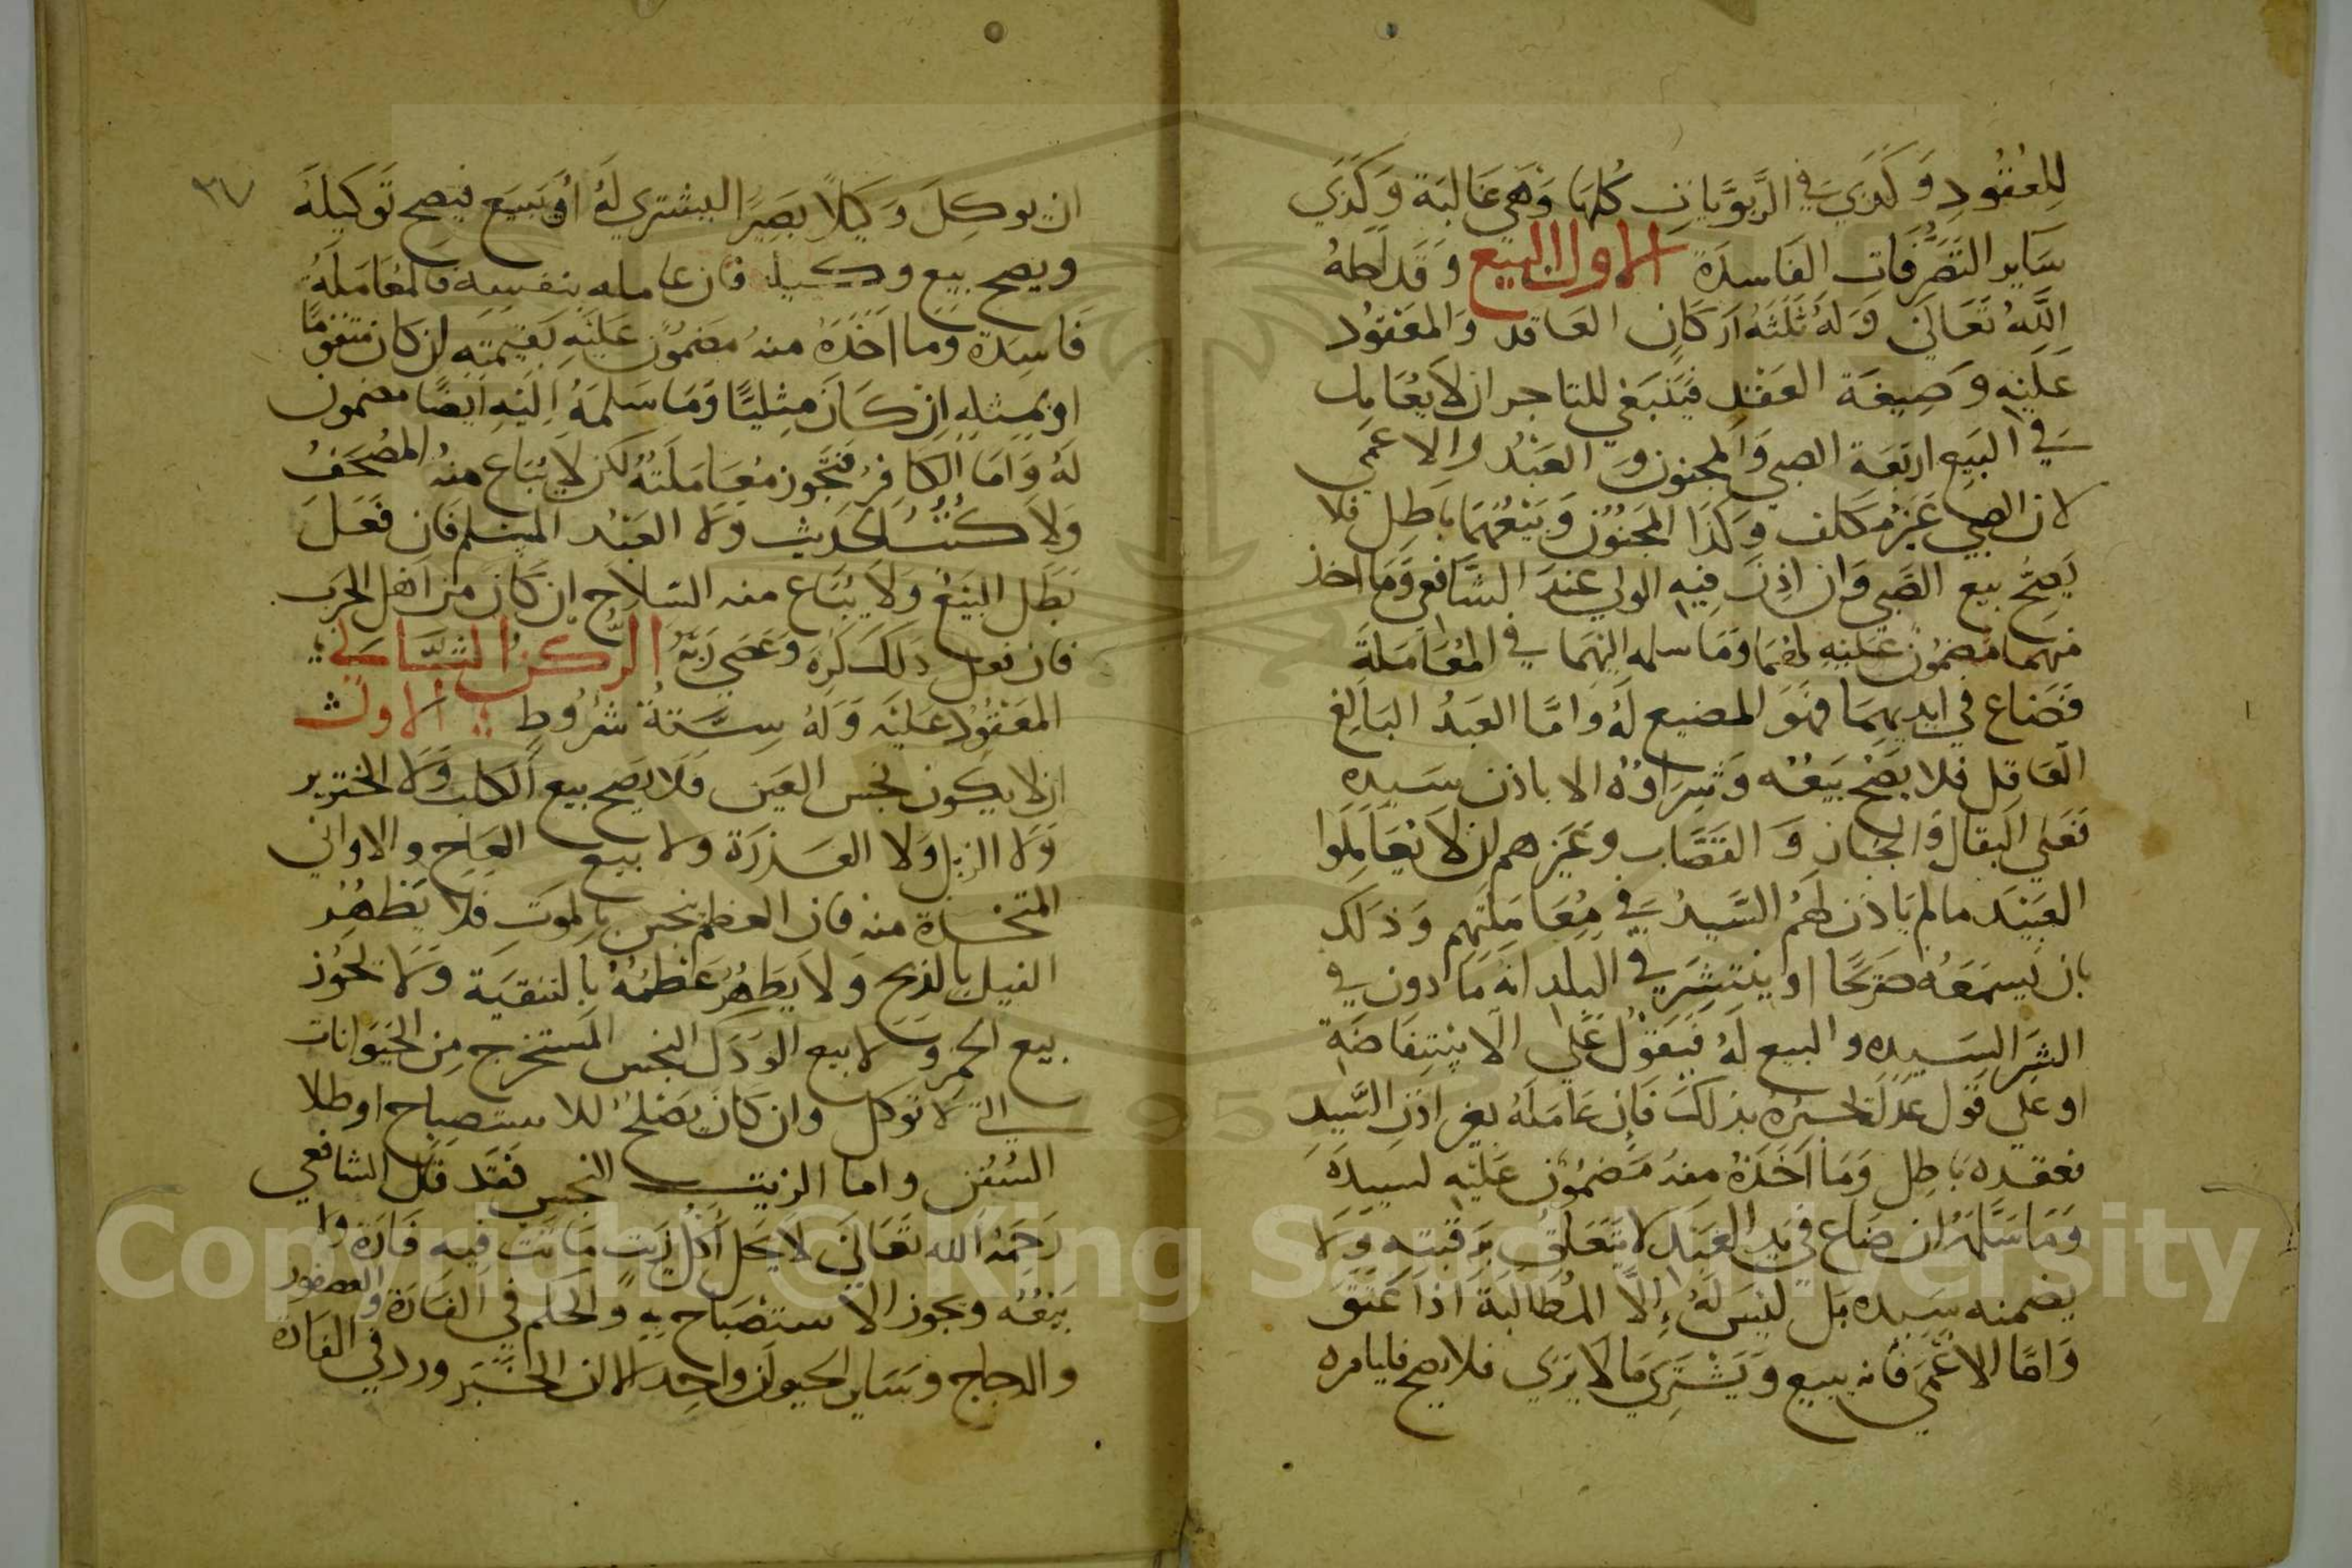 للعقود وكذي في الربويات كلها وهي غالبة وكذي
ساير التصرفات الفاسدة الاول البيع وقد احله
الله تعالى وله ثلثه اركان العاقد والمعقود
عليه وصيغة العقد فينبغي للتاجر ان لا يعامل
في البيع اربعة الصبي والمجنون والعبد والاعمى
لان الصبي غير مكلف وكذا المجنون وبيعهما باطل فلا
يصح بيع الصبي وان اذن فيه الولي عند الشافعي وما اخذ
منهما مضمون عليه لهما وما سلمه اليهما في المعاملة
فضاع في ايديهما فهو المضيع له واما العبد البالغ
العاقل فلا يصح بيعه وشراوه الا باذن سيده
فعلى البقال والخباز والقصاب وغيرهم ان لا يعاملوا
العبيد مالم ياذن لهم السيد في معاملتهم وذلك
بان يسمعه صريحا او ينتشر في البلد انه مادون في
الشرا لسيده والبيع له فيعول على الاستفاضة
او على قول عدل يخبره بذلك فان عامله بغير اذن السيد
فعقده باطل وما اخذه منه مضمون عليه لسيده
وما سلمه ان ضاع في يد العبد لا يتعلق برقبته ولا
يضمنه سيده بل ليس له الا المطالبة اذا عتق
واما الاعمى فانه يبيع ويشتري ما لا يرى فلا يصح فليامره
٣٧
ان يوكل وكيلا بصيرا ليشتري له او يبيع فيصح توكيله
ويصح بيع وكيله فان عامله بنفسه فالمعاملة
فاسدة وما اخذه منه مضمون عليه بقيمته ان كان متقوما
او بمثله ان كان مثليا وما سلمه اليه ايضا مضمون
له واما الكافر فتجوز معاملته لكن لا يباع منه المصحف
ولا كتب الحديث ولا العبد المسلم فان فعل
بطل البيع ولا يباع منه السلاح ان كان من اهل الحرب
فان فعل ذلك كره وعصى ربه الركن الثاني
المعقود عليه وله ستة شروط الاول
ان لا يكون نجس العين فلا يصح بيع الكلب ولا الخنزير
ولا الزبل ولا العذرة ولا بيع العاج والاواني
المتخذة منه فان العظم ينجس بالموت فلا يطهر
الفيل بالذبح ولا يطهر عظمه بالتنقية ولا يجوز
بيع الخمر ولا بيع الودك النجس المستخرج من الحيوانات
التي لا توكل وان كان يصلح للاستصباح او طلا
السفن واما الزيت النجس فقد قال الشافعي
رحمه الله تعالى لا يحل اكل زيت ماتت فيه فارة ولا
بيعه ويجوز الاستصباح به والحكم في الفارة والعصفور
والدجاج وساير الحيوان واحد الا ان الخبر ورد في الفارة
Copyright © King Saud University
1957